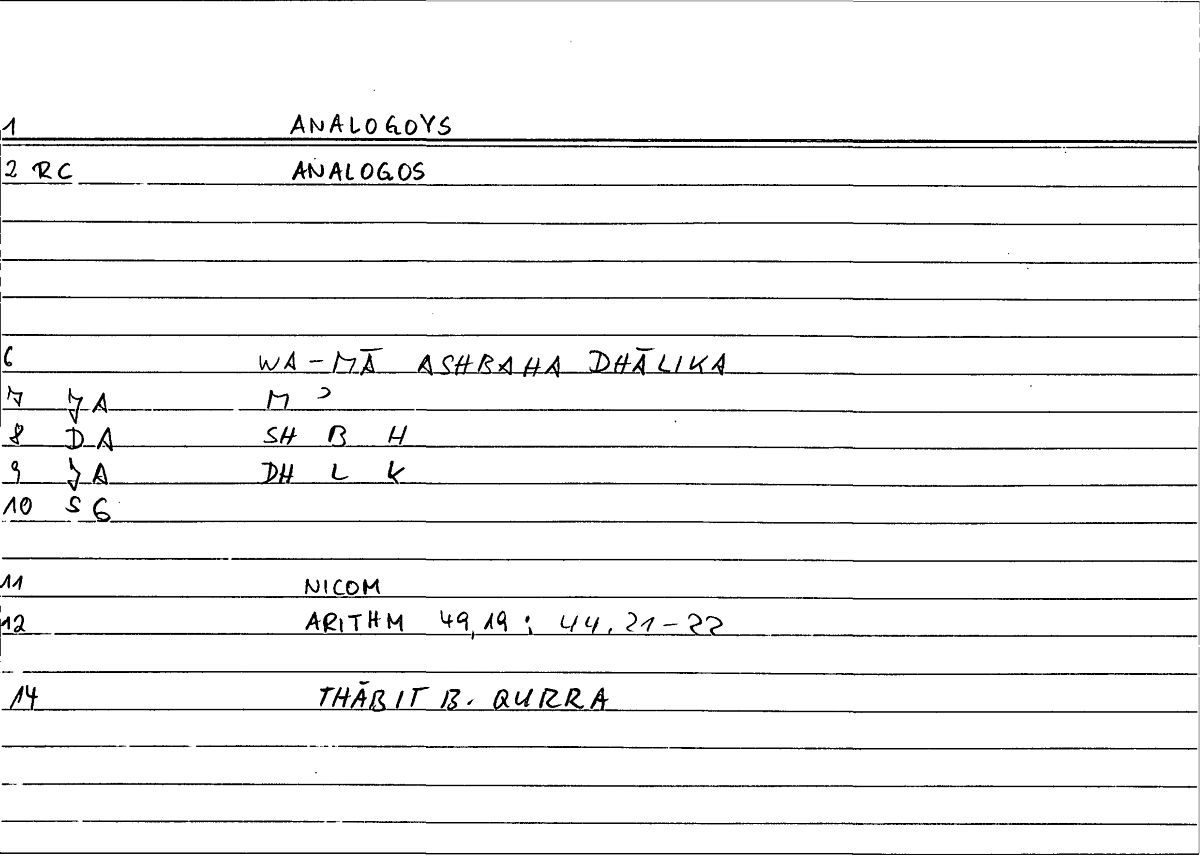 1 ANALOGOYS
2 RC ANALOGOS
6 WA-MĀ ASHBAHA DHĀLIKA
7 JA M ʾ
8 DA SH B H
9 JA DH L K
10 SG
11 NICOM
12 ARITHM 49,19 : 44.21-22
14 THĀBIT B. QURRA